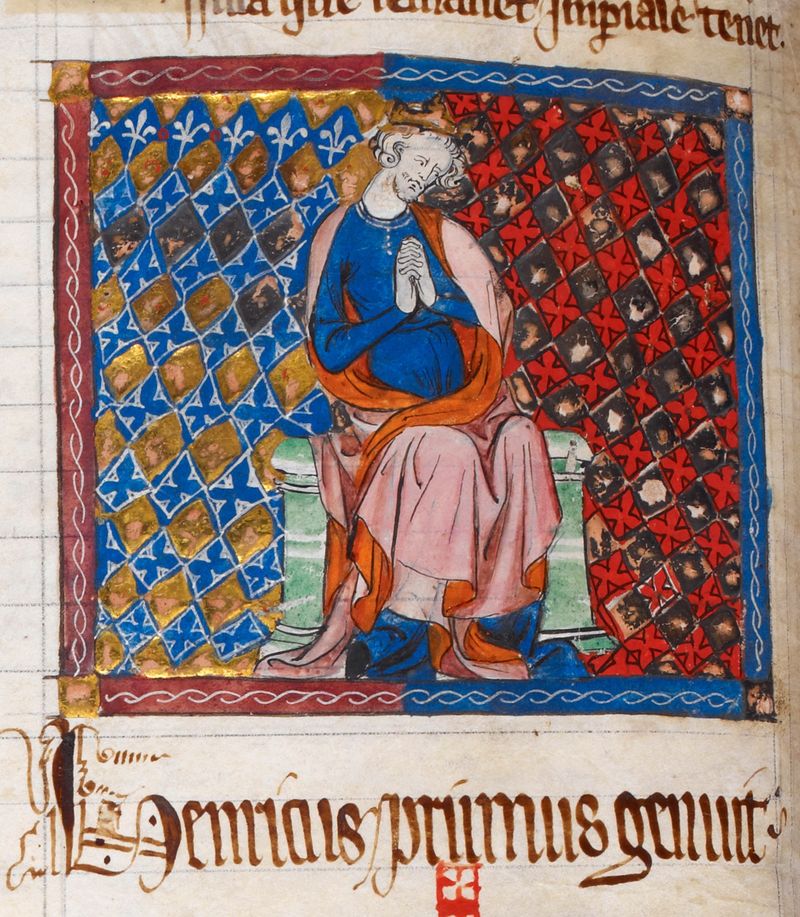 illa que remanet Imp̲iale tenet.
Henricus primus genuit